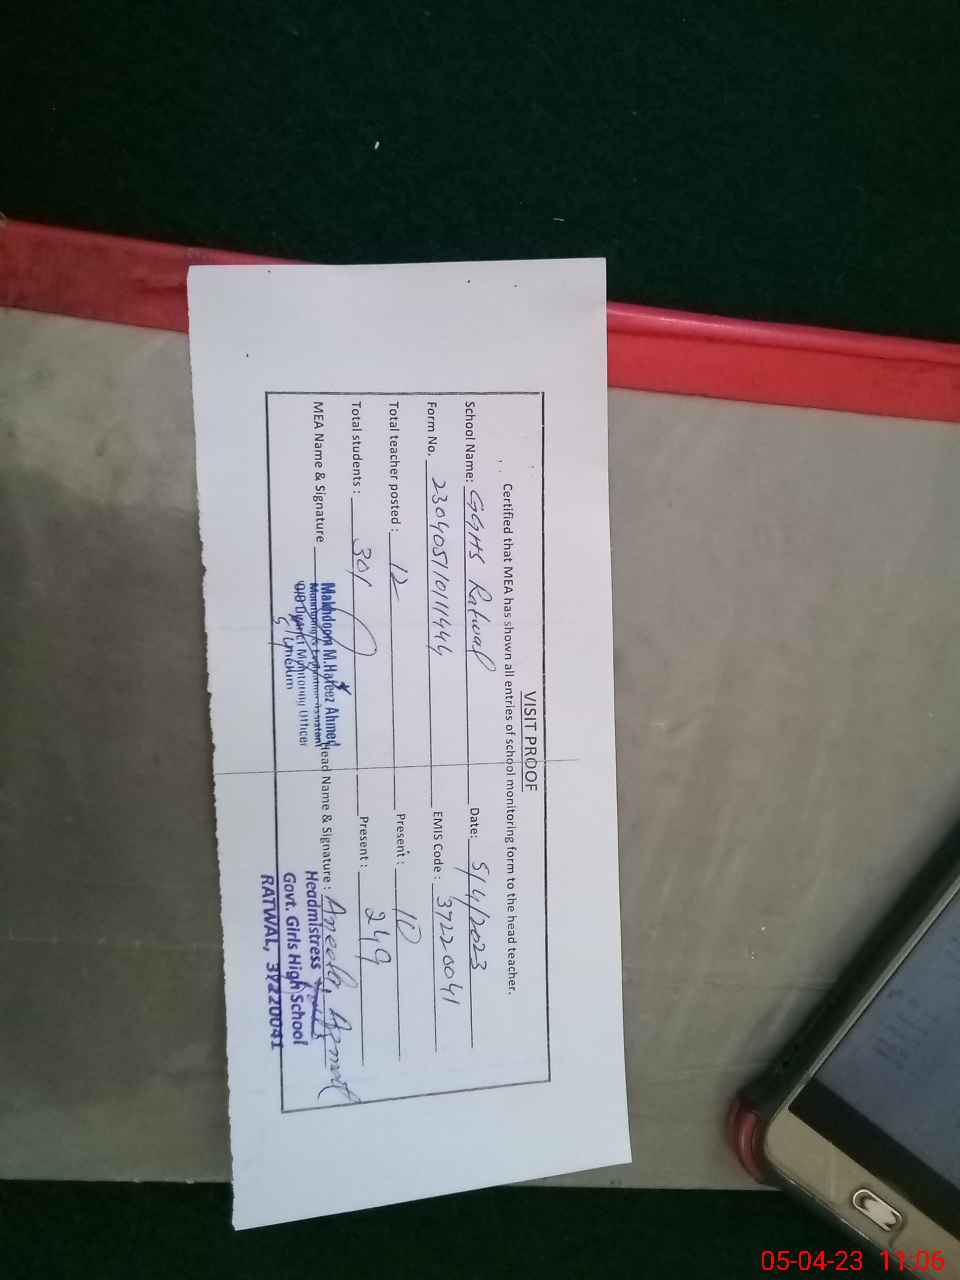 VISIT PROOF
Certified that MEA has shown all entries of school monitoring form to the head teacher.
School Name: GGHS Ratwal Date: 5/4/2023
Form No. 2304051011444 EMIS Code : 37220041
Total teacher posted : 12 Present : 10
Total students : 301 Present : 249
MEA Name & Signature Head Name & Signature : Aneela
Makhdoom M.Hafeez Ahmed
Monitoring & Evaluation Assistant
O/O District Monitoring Officer
Headmistress
Govt. Girls High School
RATWAL, 37220041
05-04-23 11:06